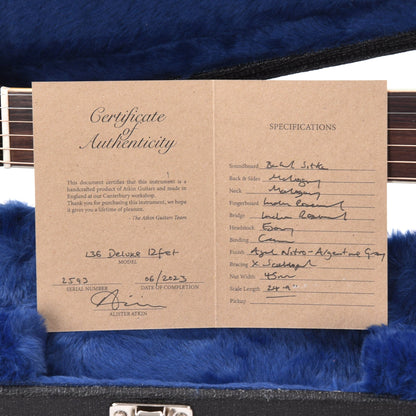 Certificate
of
Authenticity
This document certifies that this instrument is a
handcrafted product of Atkin Guitars and made in
England at our Canterbury workshop.
Thank you for purchasing this instrument, we hope
it gives you a lifetime of pleasure.
- The Atkin Guitars Team
L36 Deluxe 12fret
MODEL
2593
SERIAL NUMBER
06/2023
DATE OF COMPLETION
ALISTER ATKIN
SPECIFICATIONS
Soundboard Baked Sitka
Back & Sides Mahogany
Neck Mahogany
Fingerboard Indian Rosewood
Bridge Indian Rosewood
Headstock Ebony
Binding Cream
Finish Aged Nitro - Argentine Gray
Bracing X Scalloped
Nut Width 45mm
Scale Length
Pickup